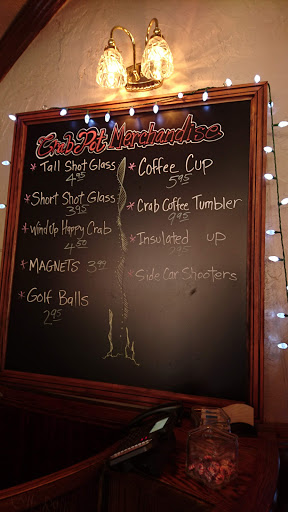 Crab Pot Merchandise
* Tall Shot Glass
4.95
* Short Shot Glass
3.95
* Wind Up Happy Crab
4.50
* MAGNETS 3.99
* Golf Balls
2.95
* Coffee Cup
5.95
* Crab Coffee Tumbler
9.95
* Insulated up
2.95
* Side Car Shooters